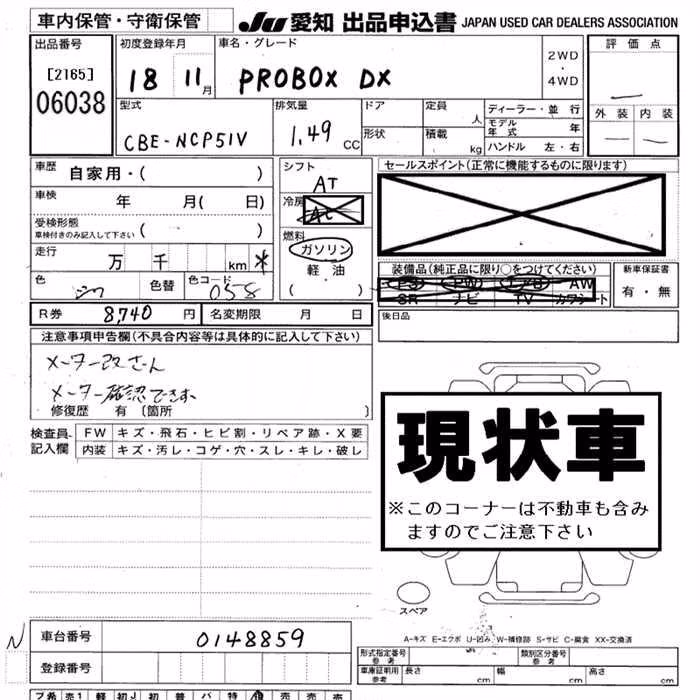 車内保管・守衛保管 JU 愛知 出品申込書 JAPAN USED CAR DEALERS ASSOCIATION
出品番号 初度登録年月 車名・グレード 2WD ・ 4WD 評価点
[2165] 18 11月 PROBOX DX
06038 外装 内装
型式 排気量 ドア 定員 人 ディーラー・並行
CBE-NCP51V 1.49 CC 形状 積載 kg モデル年式 年
ハンドル 左・右
車歴 自家用・( ) シフト AT セールスポイント(正常に機能するものに限ります)
車検 年 月( 日) 冷房 AC
受検形態 車検付きのみ記入して下さい ( ) 燃料 ガソリン
走行 万 千 km * 軽油
( )
装備品(純正品に限り○をつけてください) 新車保証書
PS PW エアB AW 有・無
SR ナビ TV カワシート
色 色替 色コード 058
R券 8,740 円 名変期限 月 日 後日品
注意事項申告欄(不具合内容等は具体的に記入して下さい)
メーター改ざん
メーター確認できず
修復歴 有 〔箇所 〕
検査員記入欄 FW キズ・飛石・ヒビ割・リペア跡・X要
内装 キズ・汚レ・コゲ・穴・スレ・キレ・破レ
現状車
※このコーナーは不動車も含み
ますのでご注意下さい
スペア
A-キズ E-エクボ U-凹み W-補修跡 S-サビ C-腐食 XX-交換済
N 車台番号 0148859
登録番号
形式指定番号 参考 類別区分番号 参考
車庫証明用 参考 長さ cm 幅 cm 高さ cm